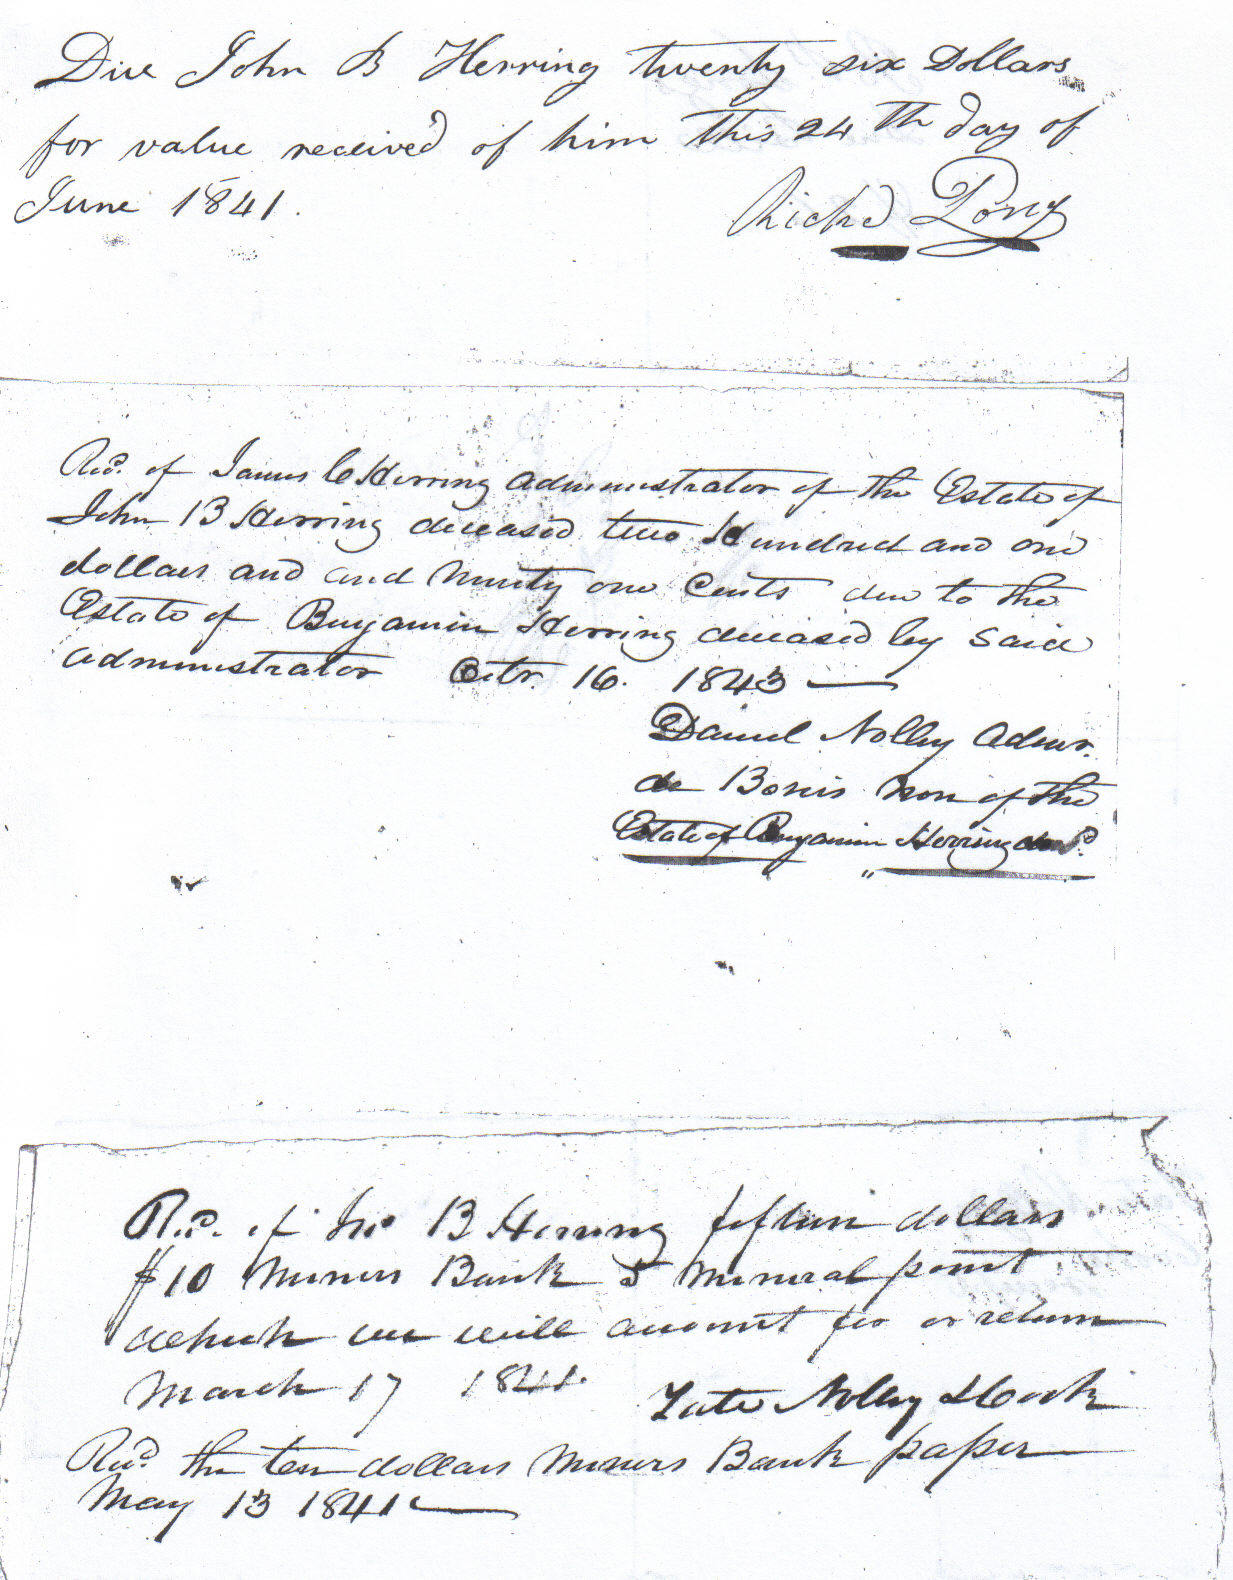 Due John B Herring twenty six Dollars
for value received of him this 24th day of
June 1841.
Richd
Recd. of James C Herring administrator of the Estate of
John B Herring deceased two Hundred and one
dollars and and Ninety one Cents due to the
Estate of Benjamin Herring deceased by said
administrator Octr. 16. 1843
Daniel Nolley Admr.
de Bonis non of the
Estate of Benjamin Herring decd.
Recd. of Jno B Herring fifteen dollars
$10 Miners Bank 5 Mineral point
which we will account for or return
March 17 1841.
Nolley & Cook
Recd the ten dollars Miners Bank paper
May 13 1841